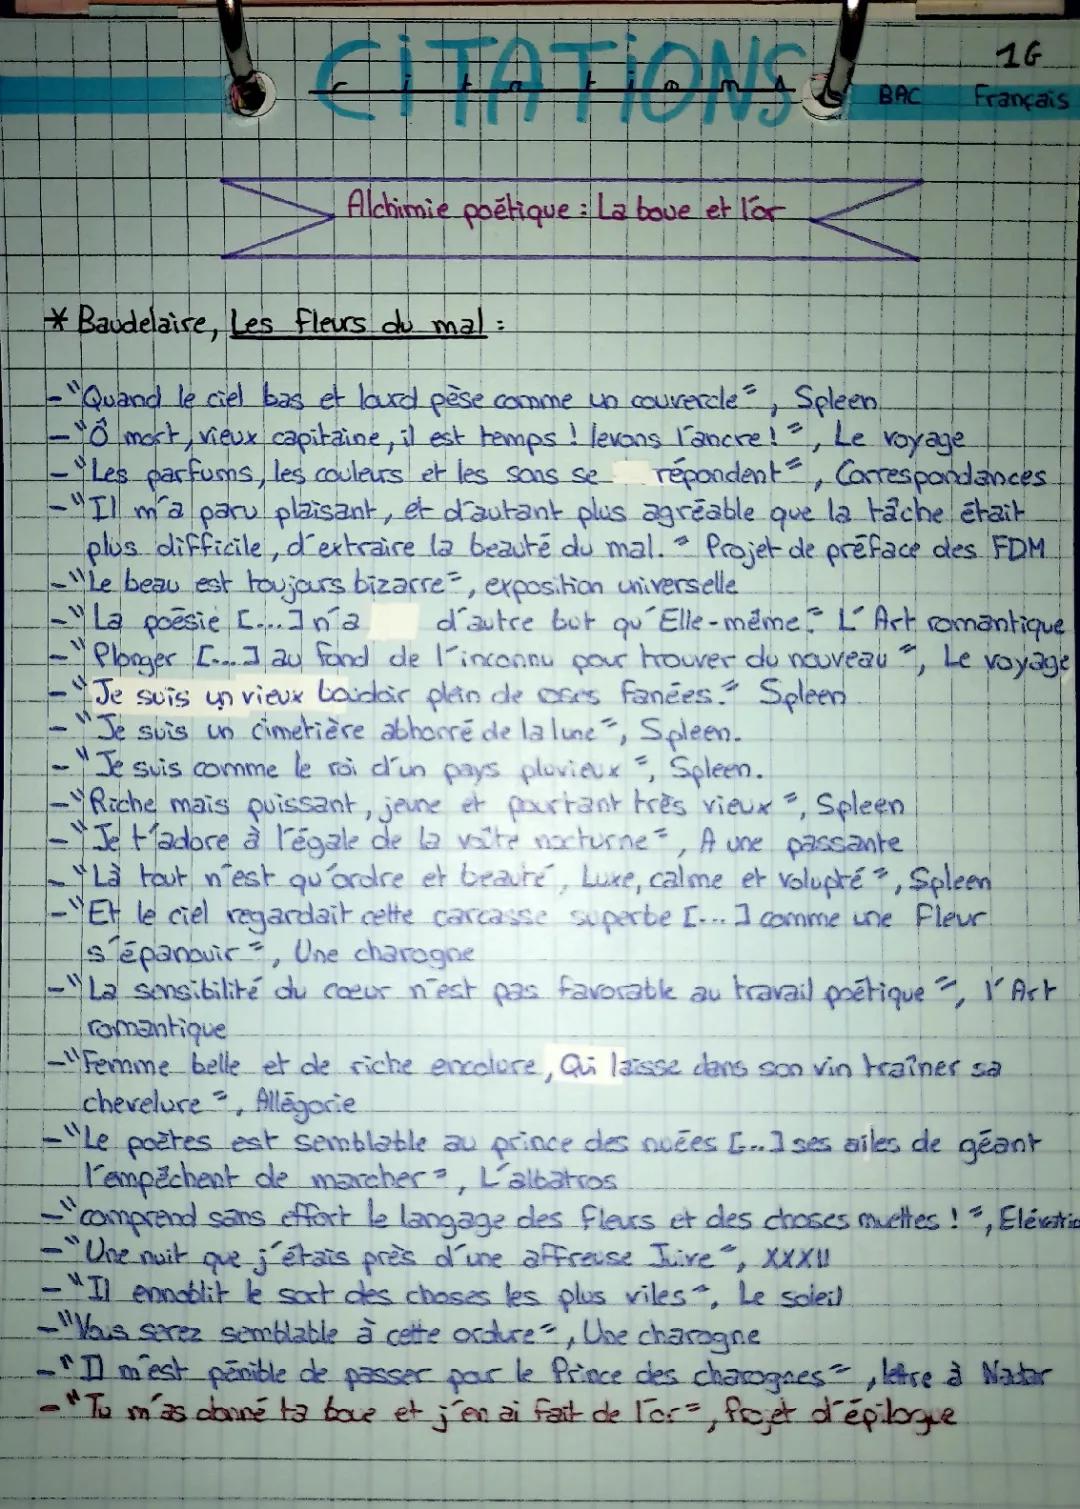 CiTATiONS
citations
1G
BAC Français
Alchimie poétique : La boue et l'or
* Baudelaire, Les fleurs du mal :
- "Quand le ciel bas et lourd pèse comme un couvercle", Spleen
- "Ô mort, vieux capitaine, il est temps ! levons l'ancre !", Le voyage
- "Les parfums, les couleurs et les sons se répondent", Correspondances
- "Il m'a paru plaisant, et d'autant plus agréable que la tâche était
plus difficile, d'extraire la beauté du mal." Projet de préface des FDM
- "Le beau est toujours bizarre", exposition universelle
- "La poésie [...] n'a d'autre but qu'Elle-même." L'Art romantique
- "Plonger [...] au fond de l'inconnu pour trouver du nouveau", Le voyage
- "Je suis un vieux boudoir plein de roses fanées." Spleen
- "Je suis un cimetière abhorré de la lune", Spleen.
- "Je suis comme le roi d'un pays pluvieux", Spleen.
- "Riche mais puissant, jeune et pourtant très vieux", Spleen
- "Je t'adore à l'égale de la voûte nocturne", A une passante
- "Là tout n'est qu'ordre et beauté, Luxe, calme et volupté", Spleen
- "Et le ciel regardait cette carcasse superbe [...] comme une Fleur
s'épanouir", Une charogne
- "La sensibilité du coeur n'est pas favorable au travail poétique", l'Art
romantique
- "Femme belle et de riche encolure, Qui laisse dans son vin traîner sa
chevelure", Allégorie
- "Le poètes est semblable au prince des nuées [...] ses ailes de géant
l'empêchent de marcher", L'albatros
- "comprend sans effort le langage des fleurs et des choses muettes !", Elévatio
- "Une nuit que j'étais près d'une affreuse Juive", XXXII
- "Il ennoblit le sort des choses les plus viles", Le soleil
- "Vous serez semblable à cette ordure", Une charogne
- "Il m'est pénible de passer pour le Prince des charognes", lettre à Nadar
- "Tu m'as donné ta boue et j'en ai fait de l'or", Projet d'épilogue